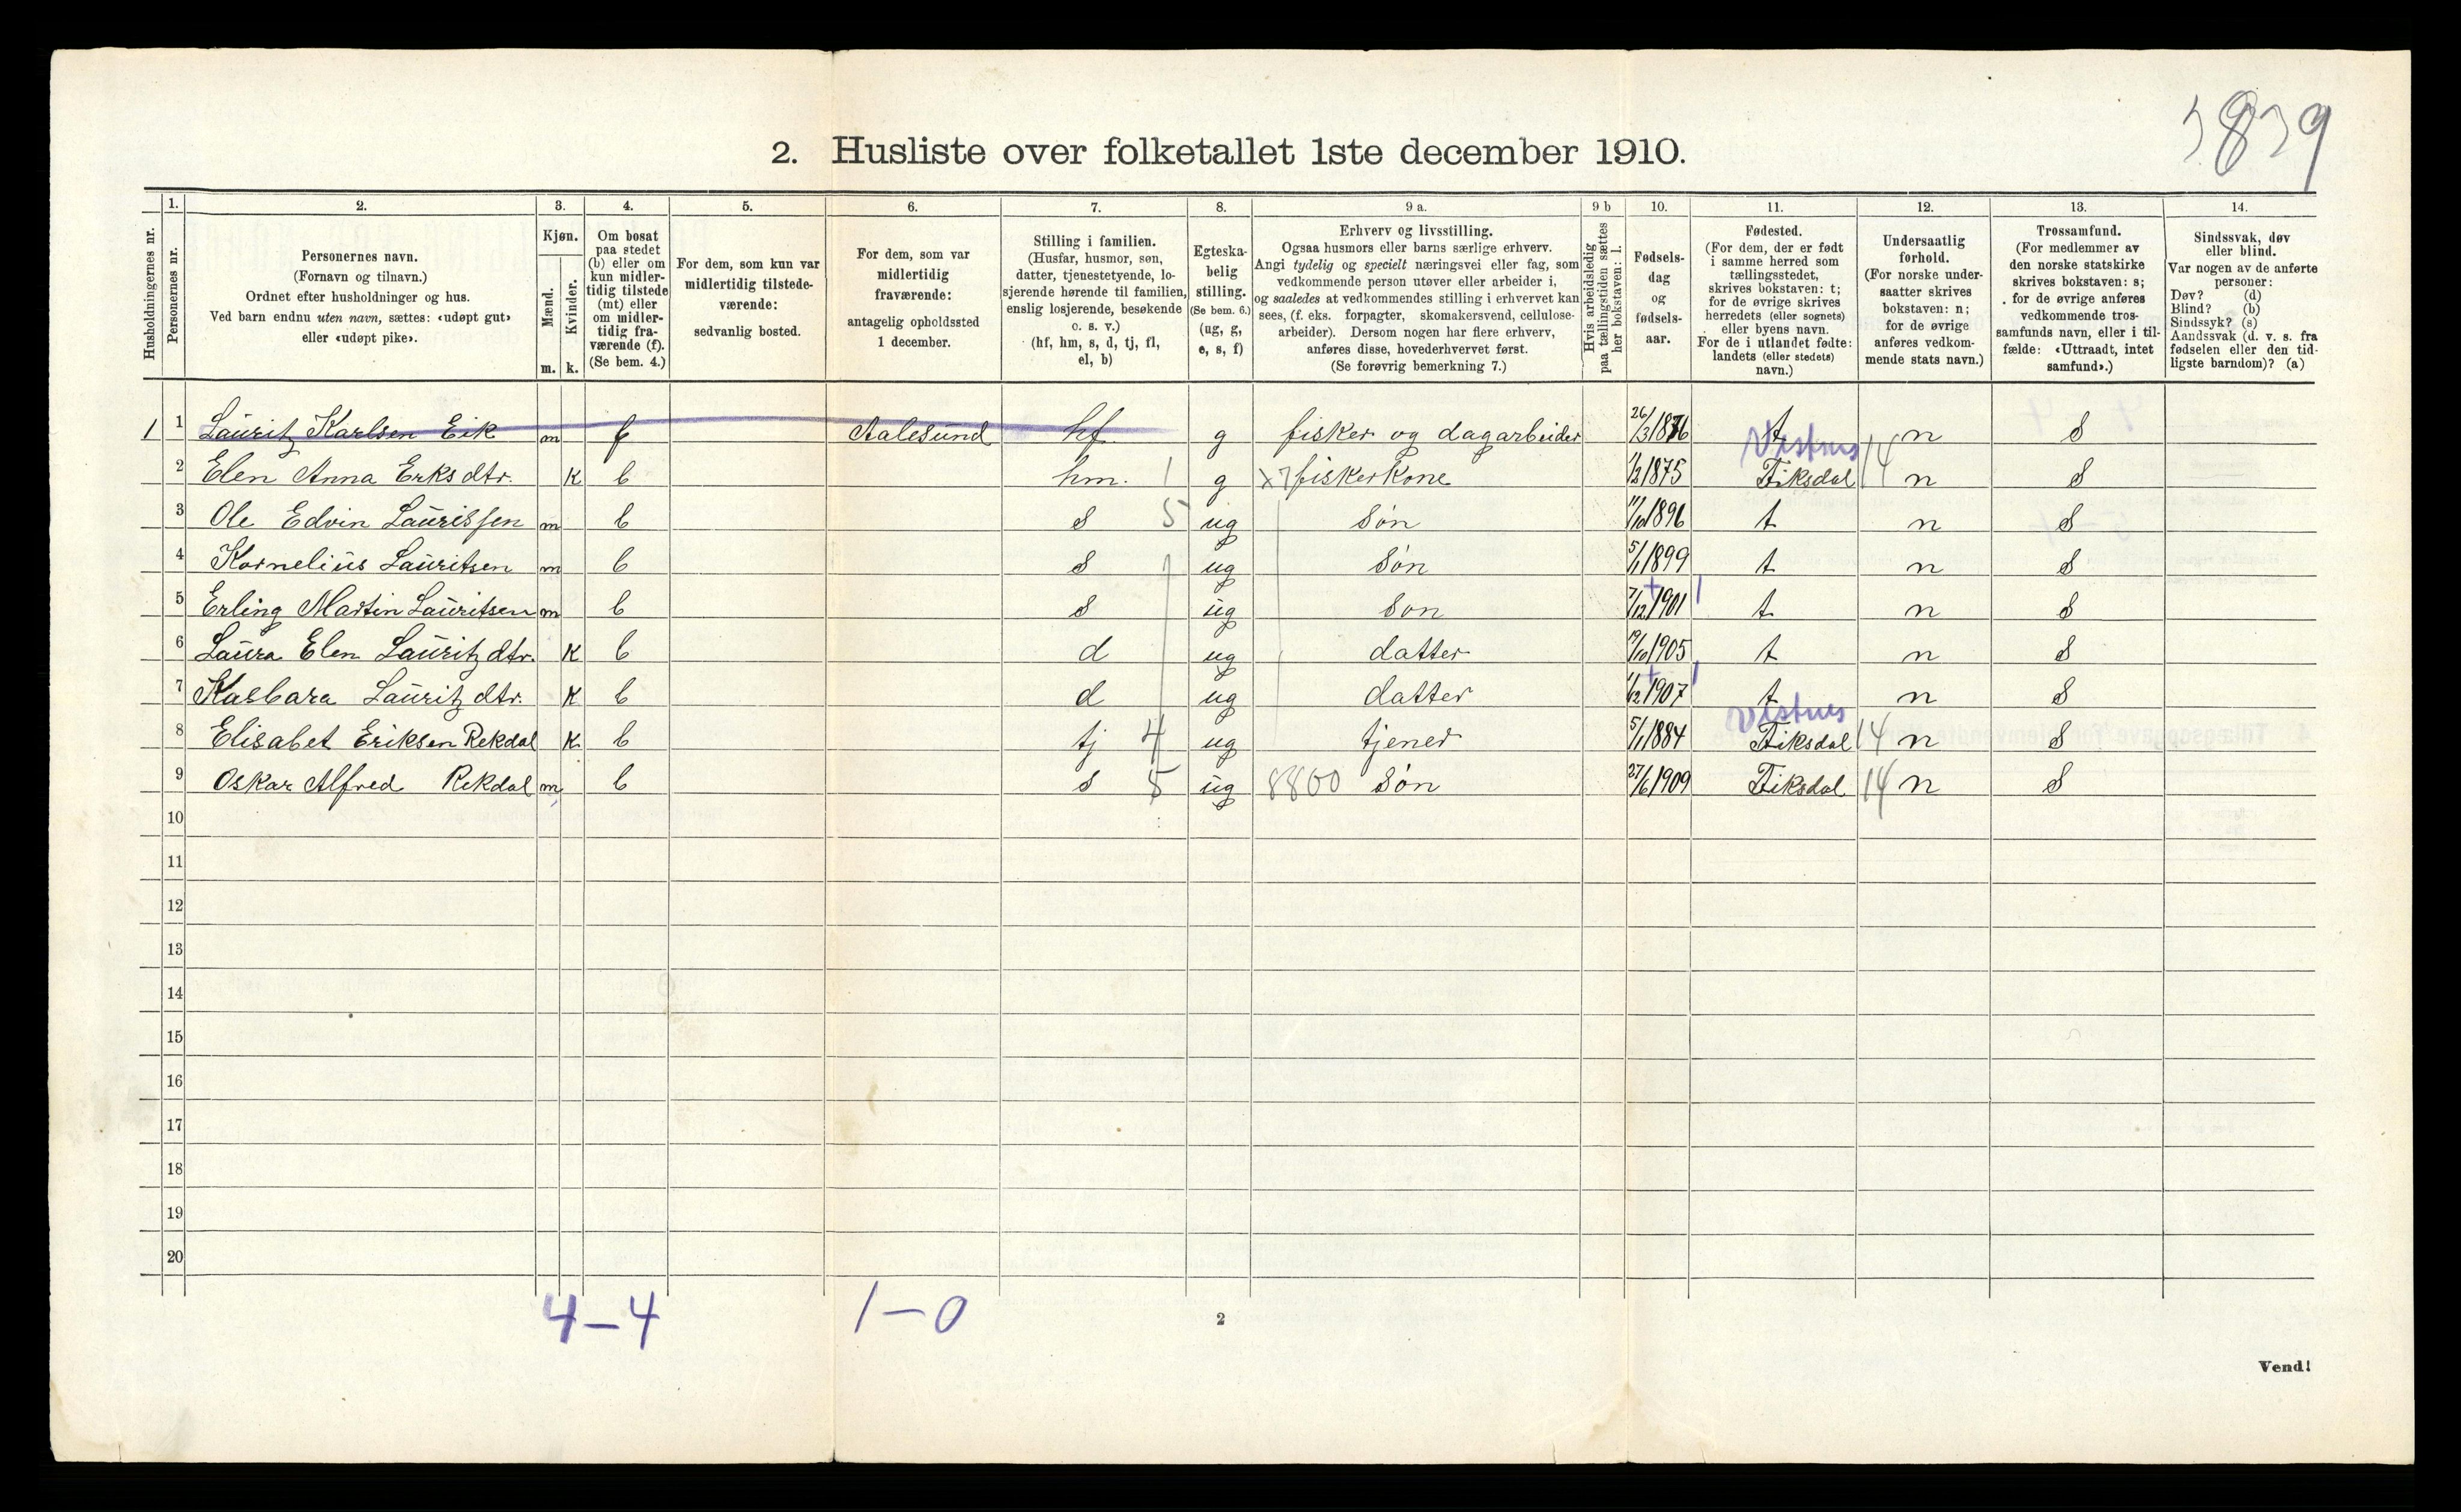 3839
2. Husliste over folketallet 1ste december 1910.
Husholdningernes nr.
1.
Personernes nr.
2.
Personernes navn.
(Fornavn og tilnavn.)
Ordnet efter husholdninger og hus.
Ved barn endnu uten navn, sættes: «udøpt gut»
eller «udøpt pike».
3.
Kjøn.
Mænd.
Kvinder.
m. k.
4.
Om bosat
paa stedet
(b) eller om
kun midler-
tidig tilstede
(mt) eller
om midler-
tidig fra-
værende (f).
(Se bem. 4.)
5.
For dem, som kun var
midlertidig tilstede-
værende:
sedvanlig bosted.
6.
For dem, som var
midlertidig
fraværende:
antagelig opholdssted
1 december.
7.
Stilling i familien.
(Husfar, husmor, søn,
datter, tjenestetyende, lo-
sjerende hørende til familien,
enslig losjerende, besøkende
o. s. v.)
(hf, hm, s, d, tj, fl,
el, b)
8.
Egteska-
belig
stilling.
(Se bem. 6.)
(ug, g,
e, s, f)
9 a.
Erhverv og livsstilling.
Ogsaa husmors eller barns særlige erhverv.
Angi tydelig og specielt næringsvei eller fag, som
vedkommende person utøver eller arbeider i,
og saaledes at vedkommendes stilling i erhvervet kan
sees, (f. eks. forpagter, skomakersvend, cellulose-
arbeider). Dersom nogen har flere erhverv,
anføres disse, hovederhvervet først.
(Se forøvrig bemerkning 7.)
9 b
Hvis arbeidsledig
paa tællingstiden sættes
her bokstaven: l.
10.
Fødsels-
dag
og
fødsels-
aar.
11.
Fødested.
(For dem, der er født
i samme herred som
tællingsstedet,
skrives bokstaven: t;
for de øvrige skrives
herredets (eller sognets)
eller byens navn.
For de i utlandet fødte:
landets (eller stedets)
navn.)
12.
Undersaatlig
forhold.
(For norske under-
saatter skrives
bokstaven: n;
for de øvrige
anføres vedkom-
mende stats navn.)
13.
Trossamfund.
(For medlemmer av
den norske statskirke
skrives bokstaven: s;
for de øvrige anføres
vedkommende tros-
samfunds navn, eller i til-
fælde: «Uttraadt, intet
samfund».)
14.
Sindssvak, døv
eller blind.
Var nogen av de anførte
personer:
Døv? (d)
Blind? (b)
Sindssyk? (s)
Aandssvak (d. v. s. fra
fødselen eller den tid-
ligste barndom)? (a)
1 1 Lauritz Karlsen Eik m f Aalesund hf g fisker og dagarbeider 26/3 1876 t n S
Vestnes
2 Elen Anna Erksdtr. K b hm. 1 g x7 fiskerkone 1/3 1875 Fiksdal 14 n S
3 Ole Edvin Laurissen m b s 5 ug Søn 11/10 1896 t n S
4 Kornelius Lauritsen m b s ug Søn 5/1 1899 t n S
5 Erling Martin Lauritsen m b s ug Søn 7/12 1901 t n S
6 Laura Elen Lauritzdtr. K b d ug datter 19/10 1905 t n S
7 Kasbara Lauritzdtr. K b d ug datter 1/12 1907 t n S
Vestnes
8 Elisabet Eriksen Rekdal K b tj 4 ug tjener 5/1 1884 Fiksdal 14 n S
9 Oskar Alfred Rekdal m b s 5 ug 8800 Søn 27/6 1909 Fiksdal 14 n S
10
11
12
13
14
15
16
17
18
19
20
4-4 1-0
2
Vend!